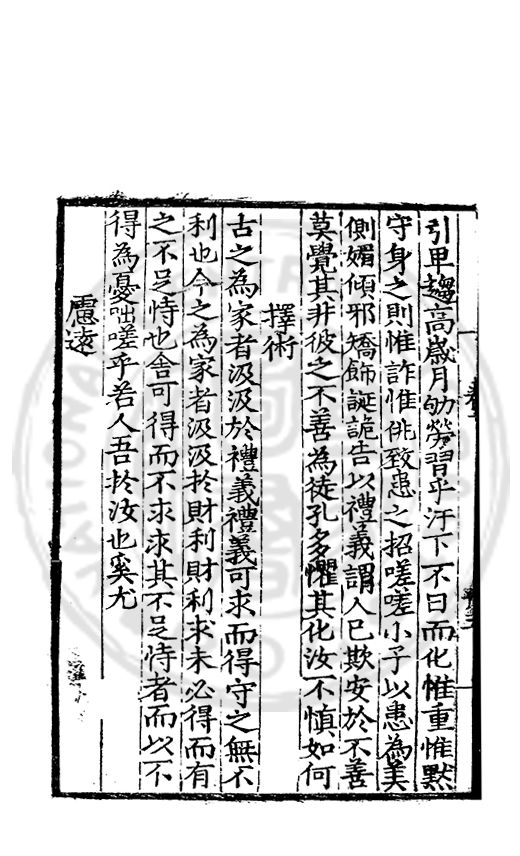 引卑趨高歲月劬勞習乎汙下不日而化惟重惟默
守身之則惟詐惟佻致患之招嗟嗟小子以患為美
側媚傾邪矯飾誕詭告以禮義謂人已欺安於不善
莫覺其非彼之不善為徒孔多懼其化汝不慎如何
擇術
古之為家者汲汲於禮義禮義可求而得守之無不
利也今之為家者汲汲於財利財利求未必得而有
之不足恃也舍可得而不求求其不足恃者而以不
得為憂咄嗟乎若人吾於汝也奚尤
慮遠